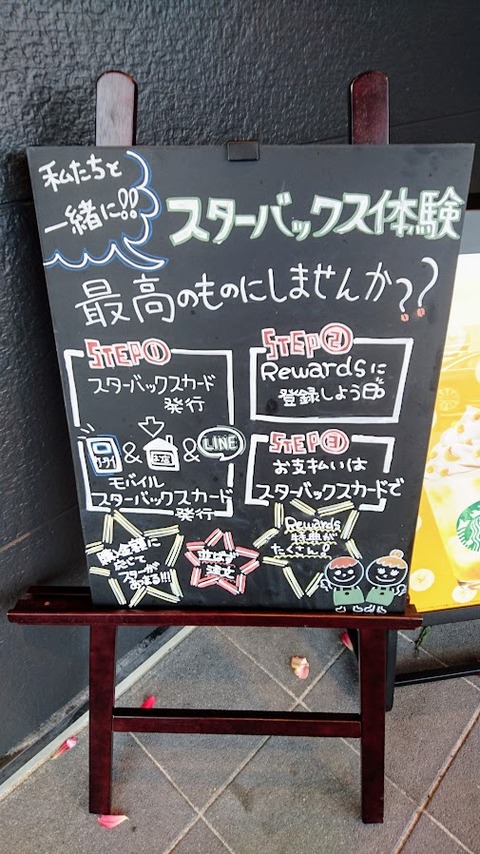 私たちと
一緒に!!
スターバックス体験
最高のものにしませんか??
STEP①
スターバックスカード
発行
& & LINE
モバイル
スターバックスカード
発行
STEP②
Rewardsに
登録しよう
STEP③
お支払いは
スターバックスカードで
購入金額に
応じて
スターが
たまる!!!
並ばず
注文
Rewards
特典が
たくさん!